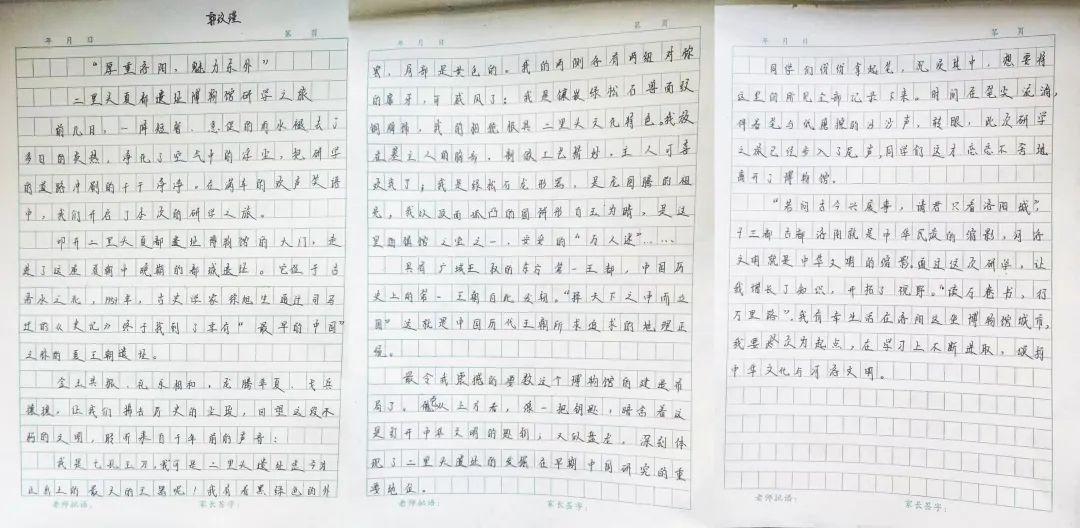 年 月 日 第 页
"厚重洛阳,魅力系外"
二里头夏都遗址博物馆研学之旅
前几日,一阵短暂、急促的雨水褪去了
多日的炎热,净化了空气中的浮尘,把研学
的道路冲刷的干干净净。在满车的欢声笑语
中,我们开启了本次的研学之旅。
叩开二里头夏都遗址博物馆的大门,走
进了这座夏朝中晚期的都城遗址。它位于古
洛水之北,1959年,古史学家徐旭生通过司马
迁的《史记》终于找到了享有"最早的中国"
之称的夏王朝遗址。
金玉共振,礼乐相和,龙腾华夏,戈兵
攘攘,让我们拂去历史的尘埃,回望这段不
朽的文明,聆听来自千年前的声音:
我是七孔玉刀,我可是二里头遗址迄今为
止出土的最大的玉器呢!我有着黑绿色的外
老师批语: 家长签字:
年 月 日 第 页
貌,局部是黄色的。我的两侧各有两组对称
的扉牙,可威风了;我是镶嵌绿松石兽面纹
铜牌饰,我的独貌极具二里头文化特色。我放
在墓主人的胸前,制做工艺精妙,主人可喜
欢我了;我是绿松石龙形器,是龙图腾的祖
先,我以双面弧凸的圆饼形白玉为睛,是这
里的镇馆之宝之一,妥妥的"万人迷"……
具有广域王权的东方第一王都,中国历
史上的第一王朝自此发轫。"择天下之中而立
国"这就是中国历代王朝所求追求的地理正
统。
最令我震撼的要数这个博物馆的建造布
局了。从上方看,像一把钥匙,暗含着这
是打开中华文明的匙钥;又似盘龙,深刻体
现了二里头遗址的发掘在早期中国研究的重
要地位。
老师批语: 家长签字:
年 月 日 第 页
同学们纷纷拿起笔,沉浸其中,想要将
这里的所见全部记录下来。时间在笔尖流淌,
伴着笔与纸摩擦的沙沙声,转眼,此次研学
之旅已经步入了尾声,同学们这才恋恋不舍地
离开了博物馆。
"若问古今兴废事,请君只看洛阳城",
十三朝古都洛阳就是中华民族的缩影,河洛
文明就是中华文明的缩影。通过这次研学,让
我增长了知识,开拓了视野。"读万卷书,行
万里路"。我有幸生活在洛阳这座博物馆城市,
我要以此为起点,在学习上不断进取,误
中华文化与河洛文明。
老师批语: 家长签字: